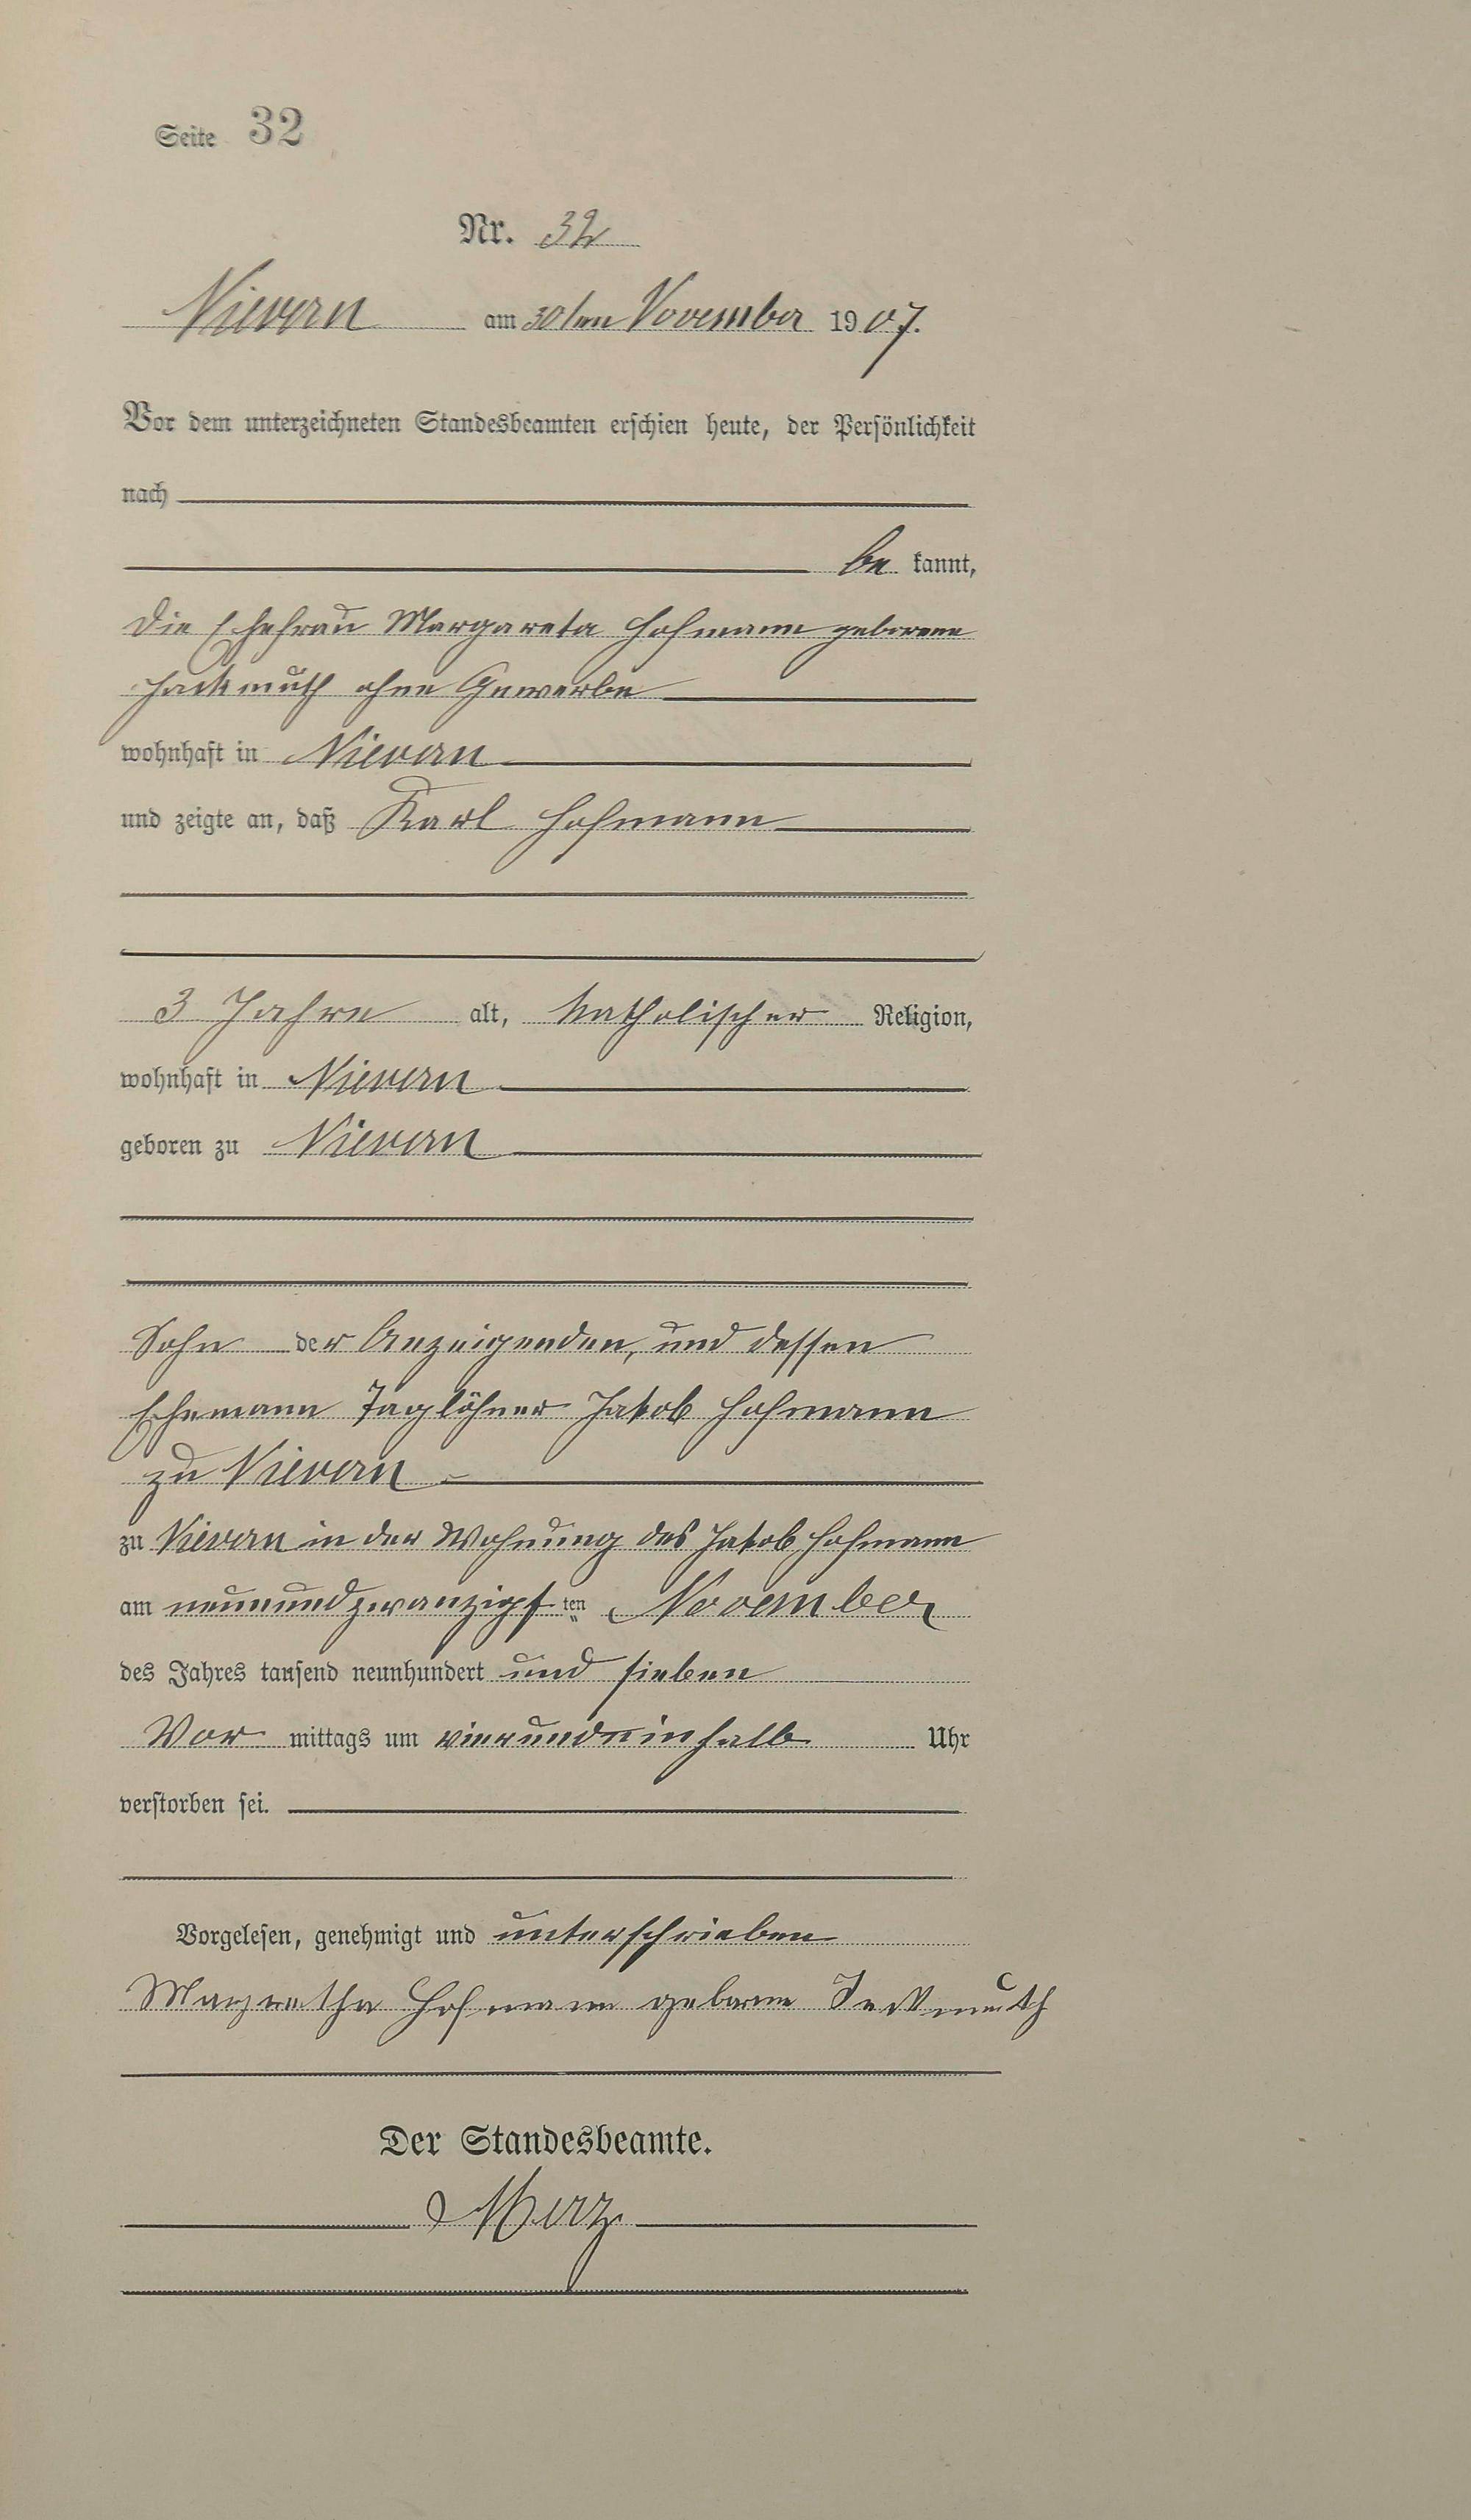 Seite 32
Nr. 32
Nievern am 30ten November 1907.
Vor dem unterzeichneten Standesbeamten erschien heute, der Persönlichkeit
nach
be kannt,
die Ehefrau Margareta Hofmann geborene
ohne Gewerbe
wohnhaft in Nievern
und zeigte an, daß Karl Hofmann
3 Jahre alt, katholischer Religion,
wohnhaft in Nievern
geboren zu Nievern
Sohn der Anzeigenden, und dessen
Ehemann Taglöhner Jakob Hofmann
zu Nievern
zu Nievern in der Wohnung des Jakob Hofmann
am neunundzwanzigsten November
des Jahres tausend neunhundert und sieben
Vor mittags um vierundeinhalb Uhr
verstorben sei.
Vorgelesen, genehmigt und unterschrieben
Margretha Hofmann geborene
Der Standesbeamte.
Merz